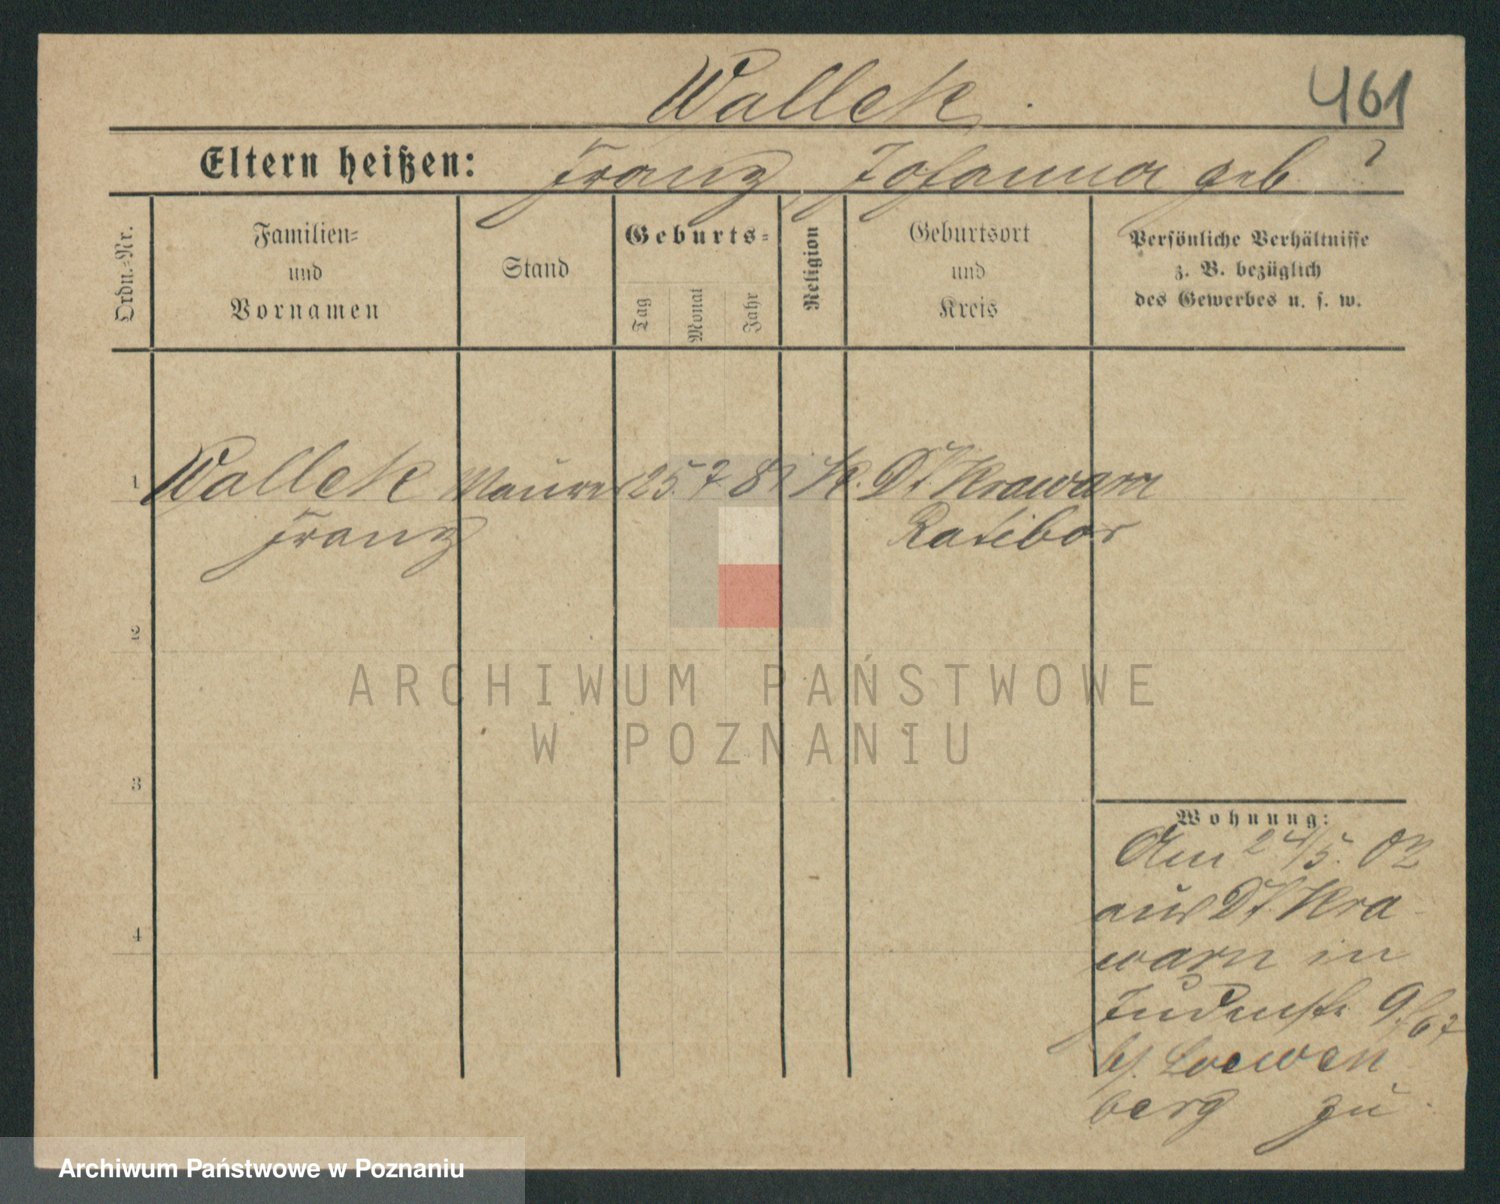 Wallek.
461
Eltern heißen: Franz Johanna geb. ?
Ordn.-Nr.
Familien-
und
Vornamen
Stand
Geburts-
Tag
Monat
Jahr
Religion
Geburtsort
und
Kreis
Persönliche Verhältnisse
z. B. bezüglich
des Gewerbes u. s. w.
1 Wallek Maurer 25. 7. K. Dt. Krawarn
Franz Ratibor
2
3
4
ARCHIWUM PAŃSTWOWE
W POZNANIU
Wohnung:
Am 24/5. 02
aus Dt. Kra-
warn in
Judenstr. 9/67
b/. Loewen
berg zu.
Archiwum Państwowe w Poznaniu